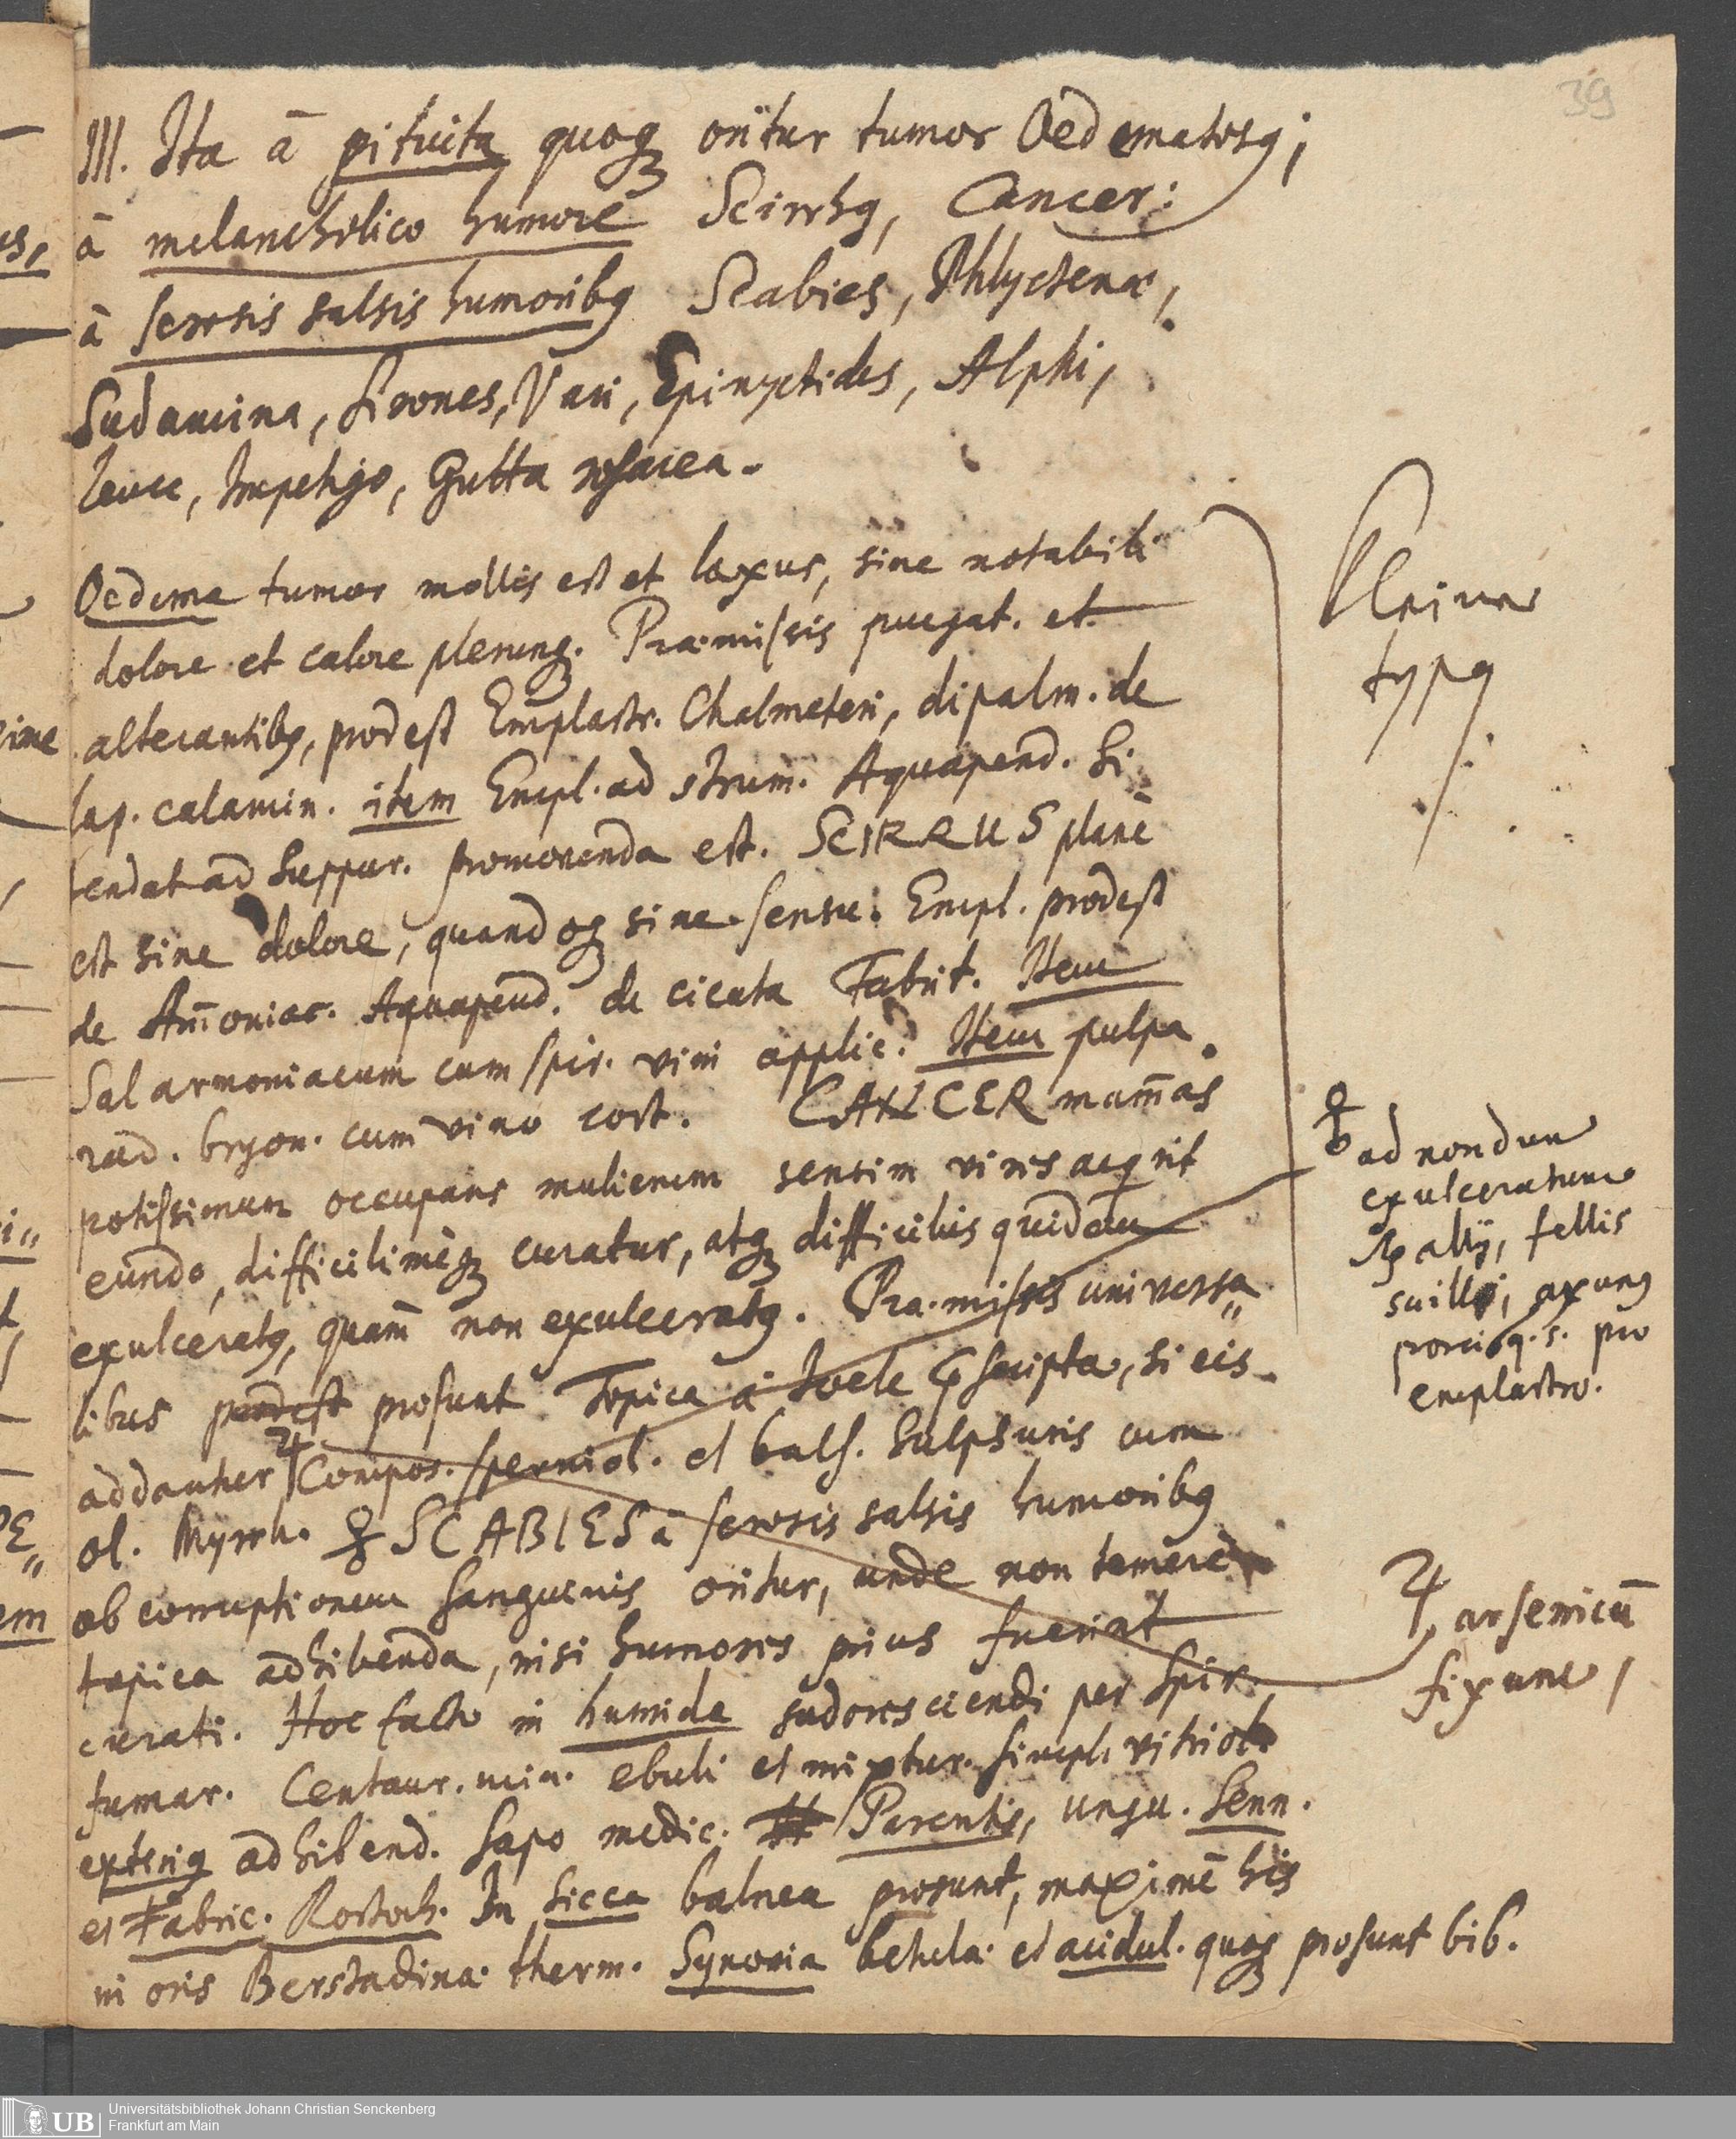 39
III. Ita à pituita quoq; oritur tumor Oedematosq;
à melancholico humore Scirrhq, Cancer:
à serosis salsis humoribq Scabies, Phlyctenæ,
Sudamina, Sirones, Vari, Epinyctides, Alphi,
Leuce, Impetigo, Gutta rosacea.
Oedema tumor mollis est et laxus, sine notabili
dolore et calore plerunq;. Præmissis purgat. et
alterantibq, prodest Emplastr. Chalmeteri, dipalm. de
lap. calamin. item Empl. ad strum. Aquapend. Si
tendat ad suppur. promovenda est. SCIRRUS planè
est sine dolore, quandoq; sine sensu. Empl. prodest
de Am̄oniac. Aquapend. de cicuta Fabric. Item
Sal armoniacum cum spir. vini applic. Item pulpa
rad. bryon. cum vino coct. CANCER mam̄as
potissimum occupans mulierum sensim vires acqrit
eundo, difficilimeq; curatur, atq; difficilius quidem
exulceratq, quam non exulceratq. Præmissis universa„
libus prodest prosunt Topica à
scripta, si eis
addantur ♃ Compos. sperniol. et bals. Sulphuris cum
ol. Myrrh. SCABIES à serosis salsis humoribq
ob corruptionem sanguinis oritur, unde non temerè
topica adhibenda, nisi humores prius fuerint
curati. Hoc facto in humida sudores ciendi per Spir.
fumar. Centaur. min. ebuli et mixtur. simpl. vitriol.
exteriq adhibend. Sapo medic. Parentis, ungu. Senn.
et Fabric. Rostoch. In sicca balnea prosunt, maximè his
in oris Berstadina therm. Synovia betulæ et acidul. quoq; prosunt bib.
typq
ad nondum
exulceratum
fellis
suilli, axung
porci q. s. pro
emplastro.
♃ arsenicū
fixum,
UB
Universitätsbibliothek Johann Christian Senckenberg
Frankfurt am Main